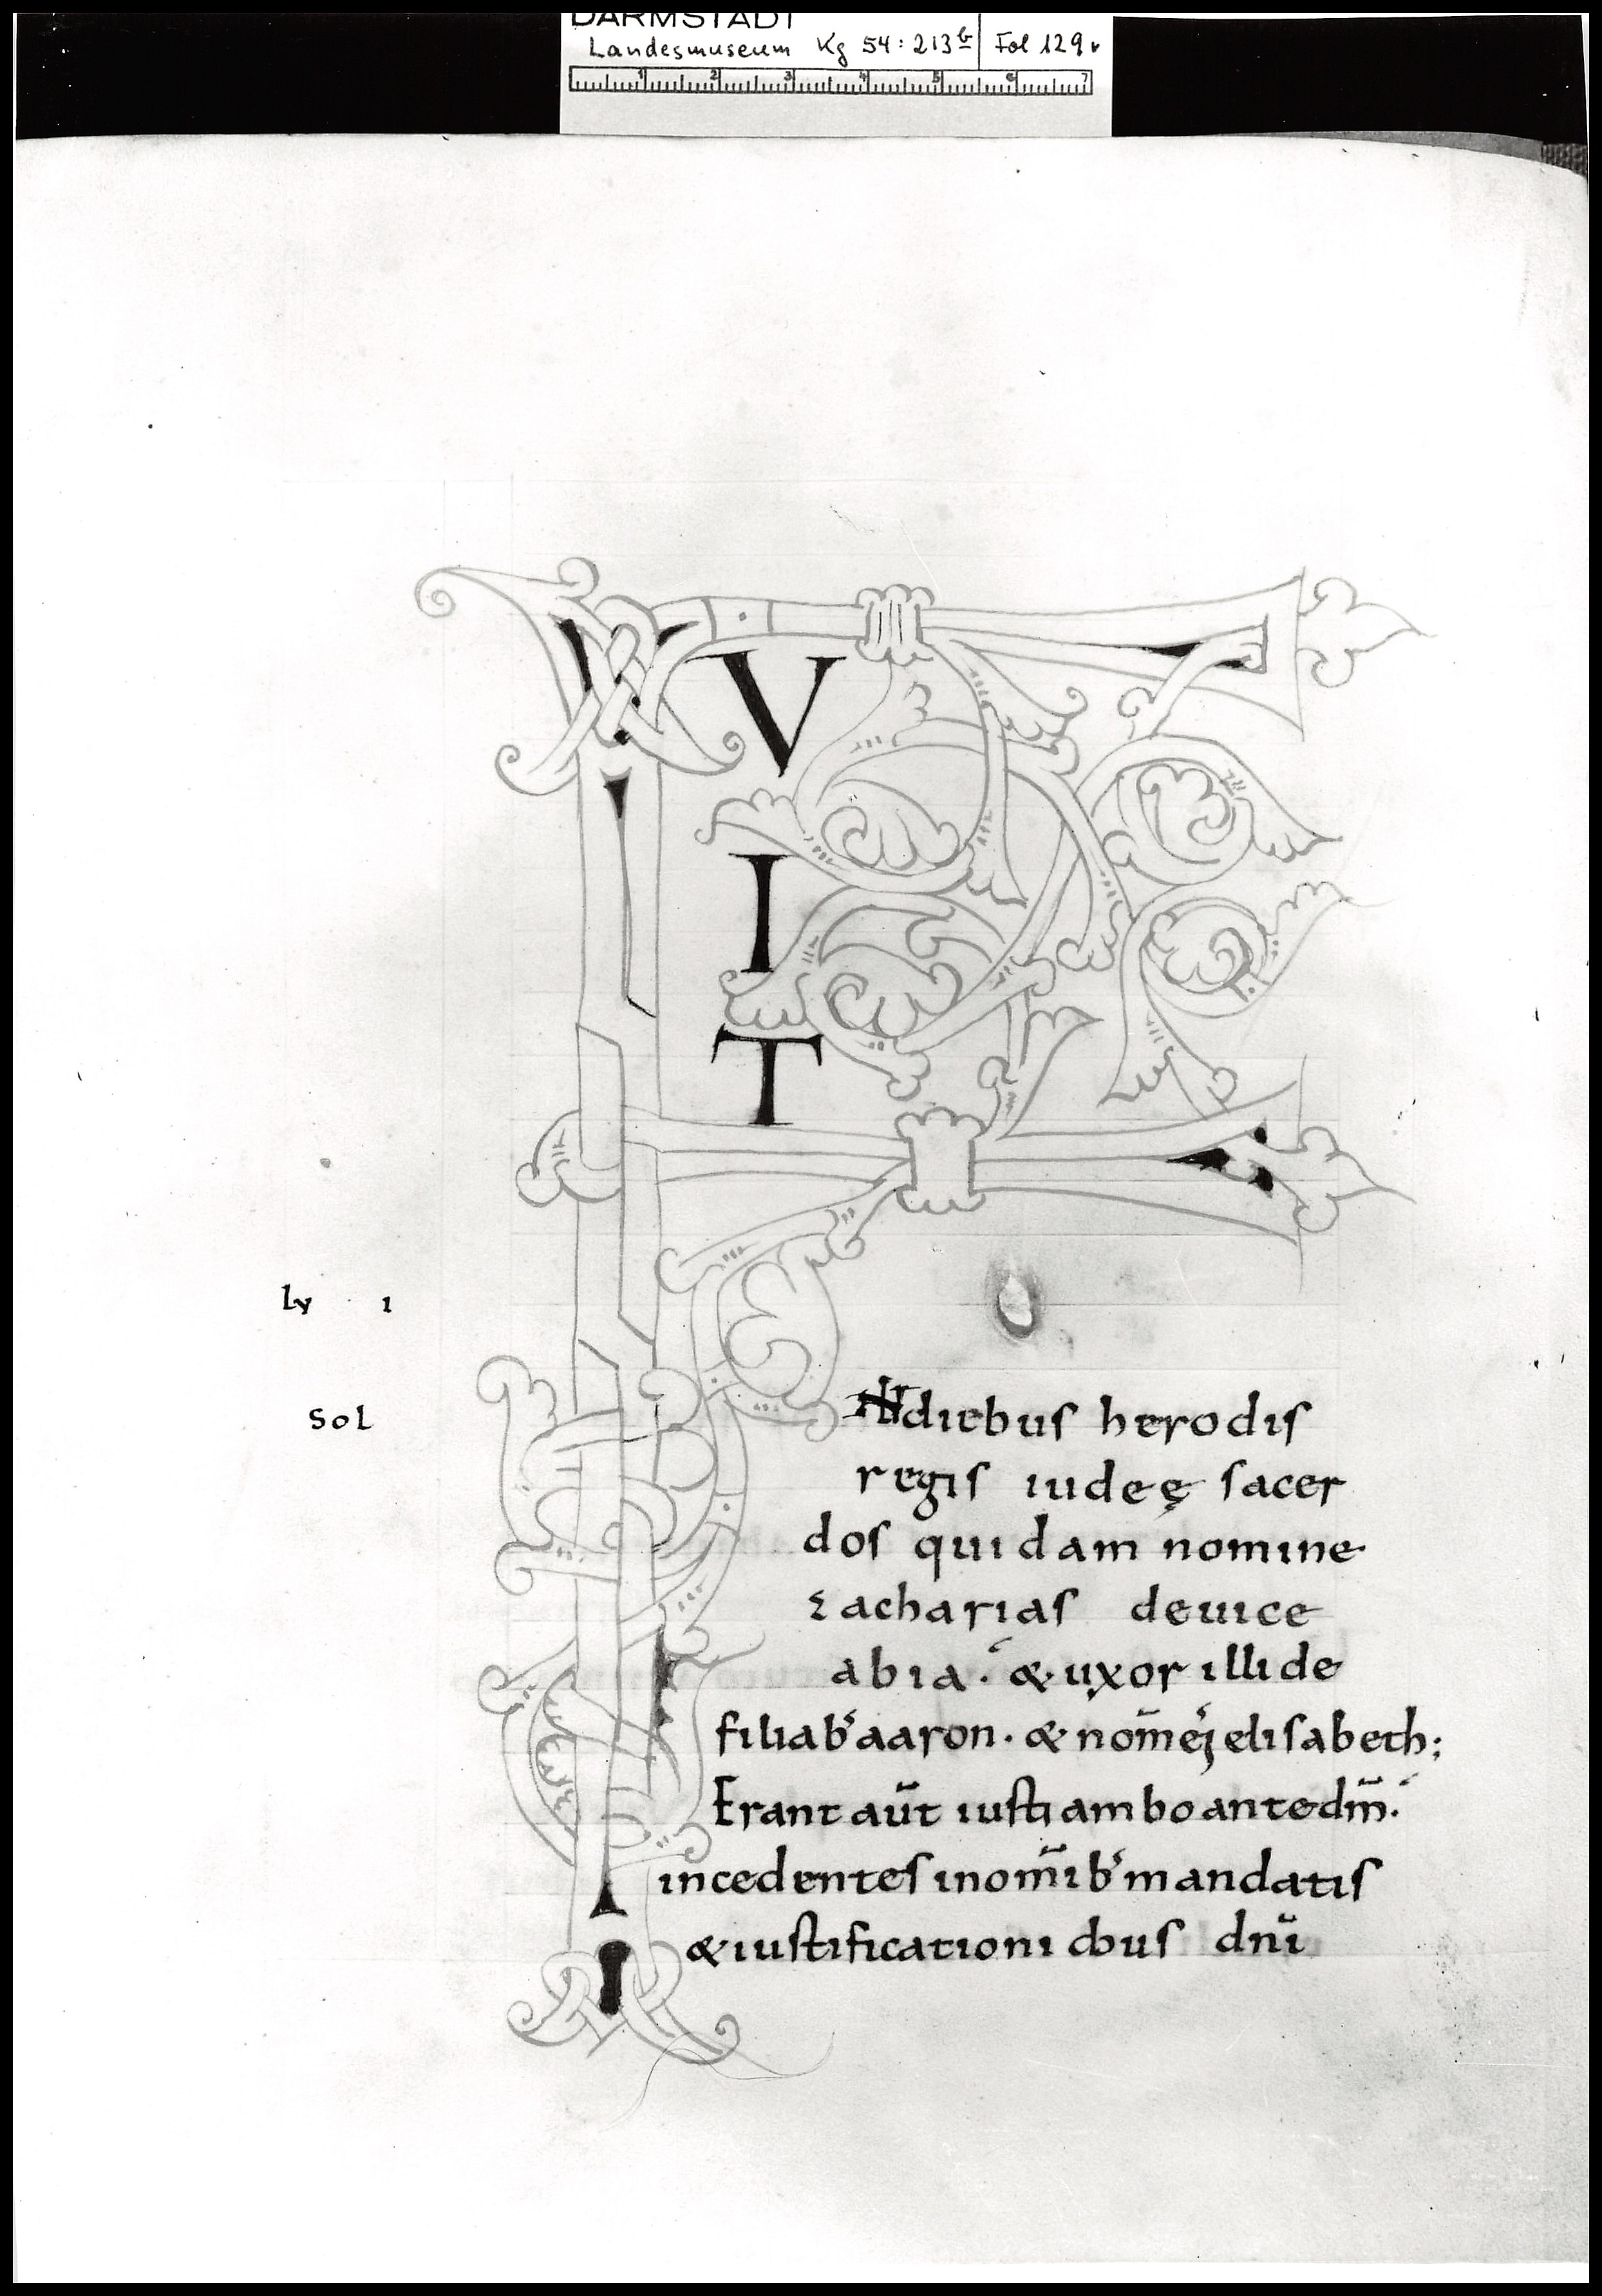 DARMSTADT
Landesmuseum Kg 54:213b Fol 129v
1 2 3 4 5 6 7
F
V
I
T
Lv 1
Sol
diebus herodis
regis iudeę sacer
dos quidam nomine
zacharias deuice
abia. & uxor illi de
filiab' aaron. & nom̄ ej elisabeth;
Erant aūt iusti ambo ante dm̄.
incedentes in om̄ib' mandatis
& iustificationibus dn̄i